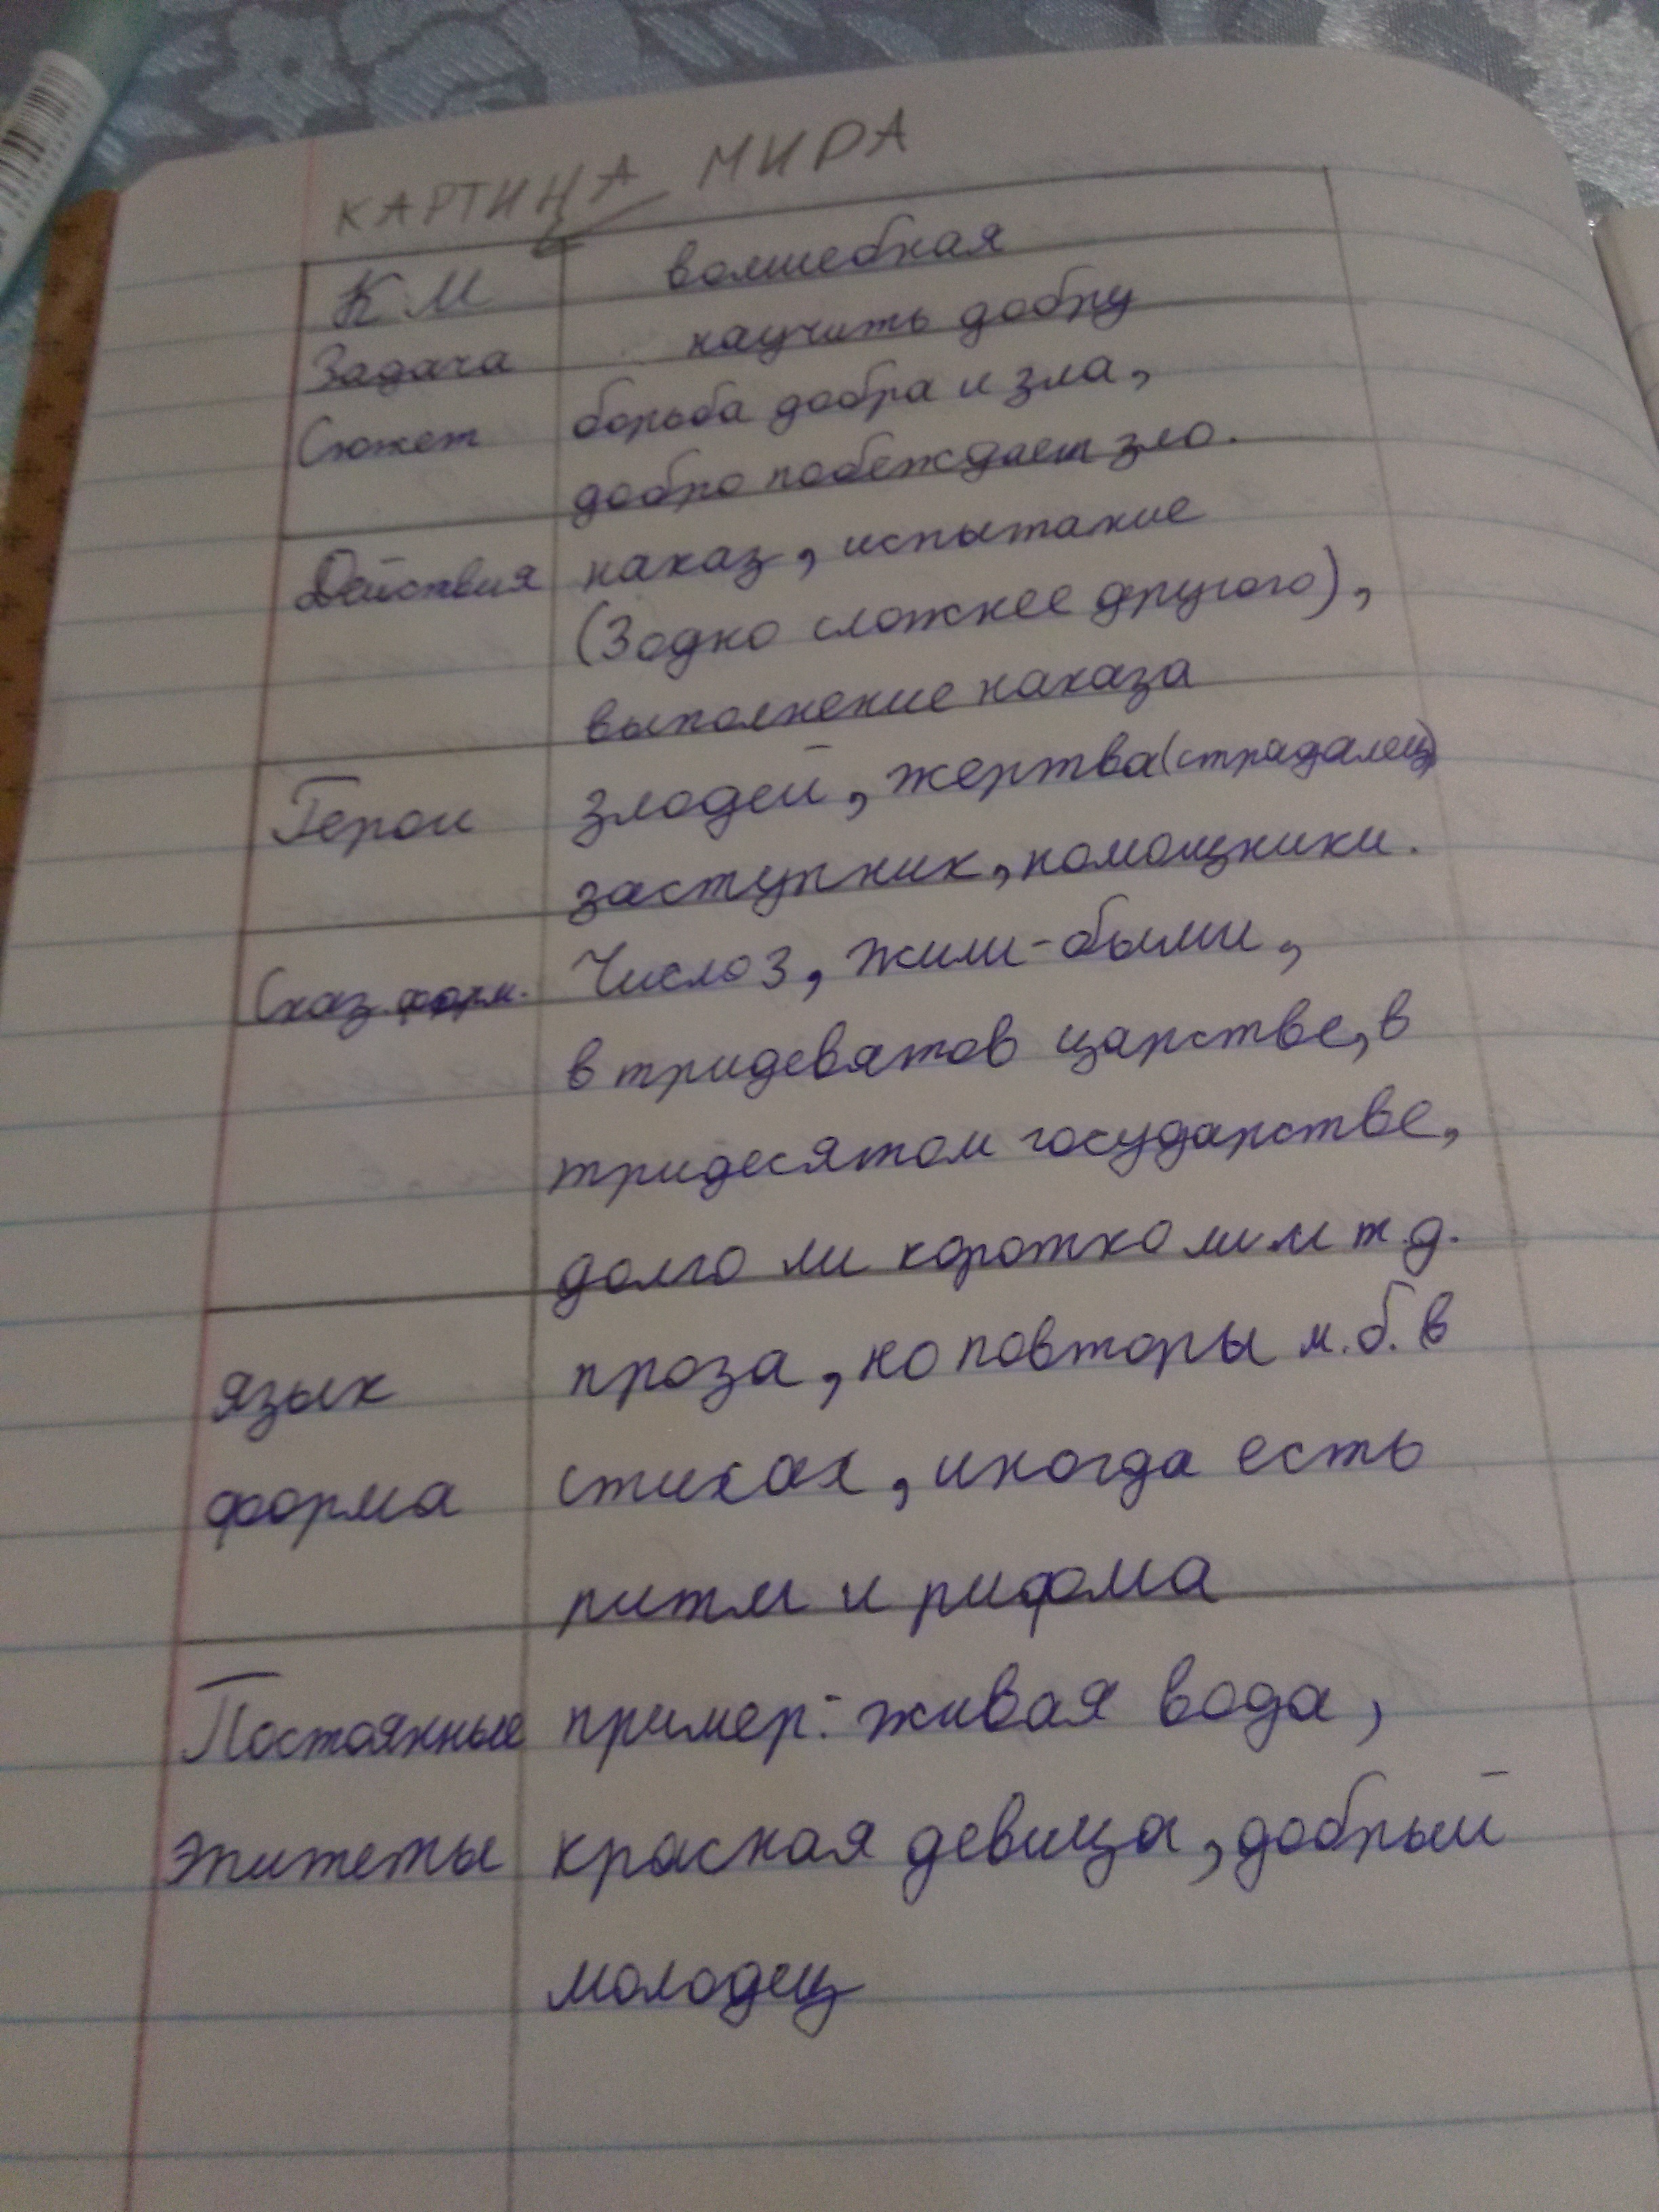 КАРТИНА МИРА
КМ волшебная
Задача научить добру
Сюжет борьба добра и зла,
добро побеждает зло.
Действия наказ, испытание
(3 одно сложнее другого),
выполнение наказа
Герои злодей, жертва (страдалец)
заступник, помощники.
Сказ. форм. Число 3, жили-были,
в тридевятов царстве, в
тридесятом государстве,
долго ли коротко ли и т.д.
язык проза, но повторы м.б. в
форма стихах, иногда есть
ритм и рифма
Постоянные пример: живая вода,
эпитеты красная девица, добрый
молодец